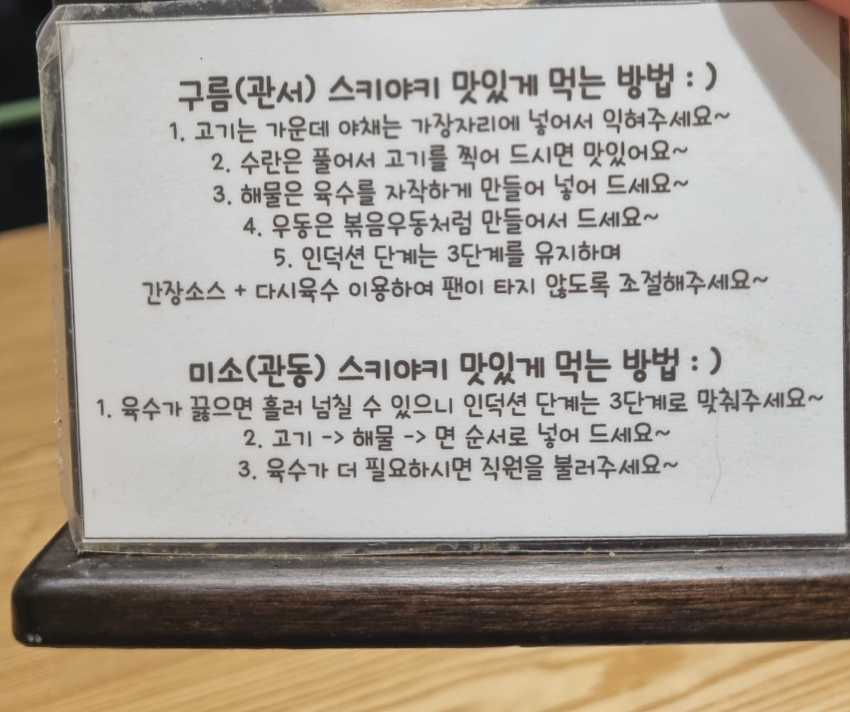 구름(관서) 스키야키 맛있게 먹는 방법 : )
1. 고기는 가운데 야채는 가장자리에 넣어서 익혀주세요~
2. 수란은 풀어서 고기를 찍어 드시면 맛있어요~
3. 해물은 육수를 자작하게 만들어 넣어 드세요~
4. 우동은 볶음우동처럼 만들어서 드세요~
5. 인덕션 단계는 3단계를 유지하며
간장소스 + 다시육수 이용하여 팬이 타지 않도록 조절해주세요~
미소(관동) 스키야키 맛있게 먹는 방법 : )
1. 육수가 끓으면 흘러 넘칠 수 있으니 인덕션 단계는 3단계로 맞춰주세요~
2. 고기 -> 해물 -> 면 순서로 넣어 드세요~
3. 육수가 더 필요하시면 직원을 불러주세요~